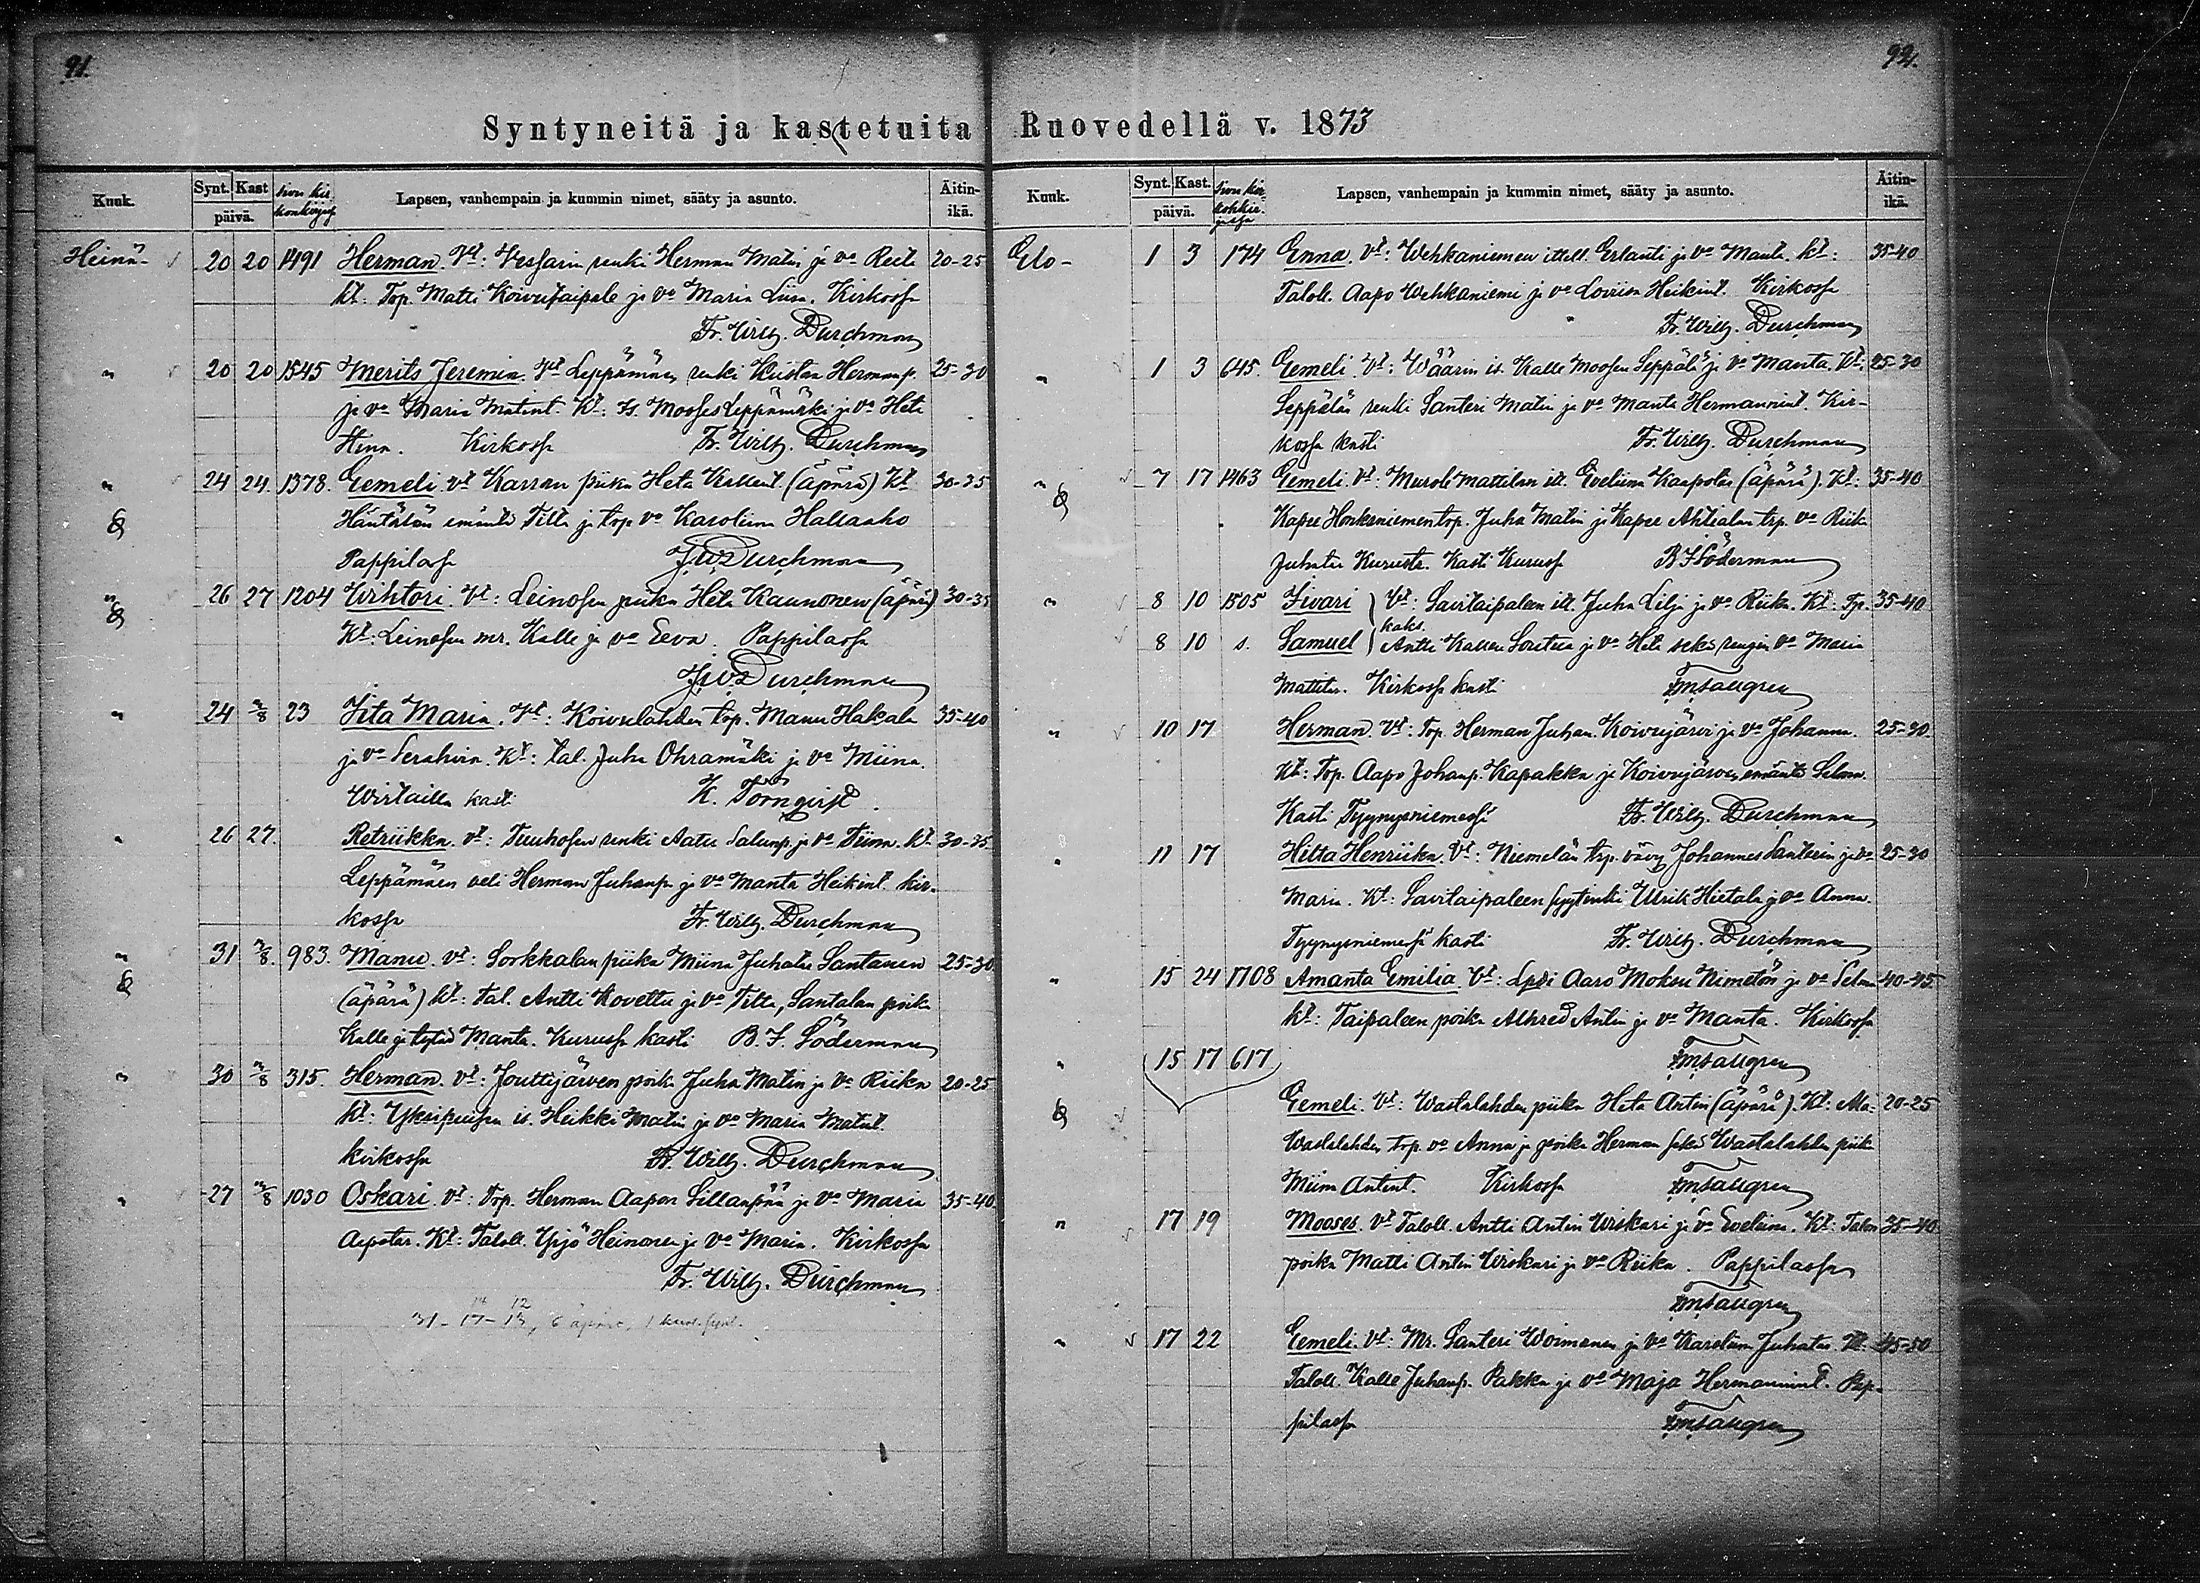 91.
92.
Syntyneitä ja kastetuita Ruovedellä v. 1873
Kuuk. Synt. Kast päivä. sivu kirkonkirjass Lapsen, vanhempain ja kummin nimet, sääty ja asunto. Äitin-ikä.
Heinä- 20 20 1491 Herman. Vt: Vessarin renki Herman Matin ja vo Reeta 20-25
kt: Top. Matti Koivutaipale ja vo Maria Liisa. Kirkossa
Fr. Wilh. Durchman
" 20 20 1545 Merits Jeremia. Vt Leppämäen renki Kustaa Hermanp. 25-30
ja vo Maria Matint. Kt: is. Mooses Leppämäki ja vo Heta
Stiina. Kirkossa Fr. Wilh. Durchman
" 24 24 1378. Eemeli. vt Karran piika Heta Kallent. (äpärä) Kt 30-35
Häntälän emäntä Tilta ja top vo Karoliina Hallaaho
Pappilass J.W. Durchman
" 26 27 1204 Wihtori. Vt: Leinosen piika Heta Kaunonen (äpärä) 30-35
Kt: Leinosen mr. Kalle ja vo Eeva. Pappilassa
J.W. Durchman
" 24 3/8 23 Iita Maria. Vt: Koivulahden top. Manu Hakala 35-40
ja vo Serahvia. Kt: tal. Juha Ohramäki ja vo Miina.
Wirtailla kasti K. Törnqvist.
" 26 27. Retriikka. vt: Tuuhosen renki Aatu Salunp. ja vo Tiina. kt 30-35
Leppämäen veli Herman Juhanp. ja vo Manta Heikint. kir-
kossa Fr. Wilh. Durchman
" 31 3/8. 983. Manu. vt: Sorkkalan piika Miina Juhatar Santanen 25-30
(äpärä) kt: tal. Antti Kovettu ja vo Tilta, Santalan poika
Kalle ja tytär Manta. Kurussa kasti B. F. Söderman
" 30 3/8 315. Herman. vt: Jouttijärven poika Juha Matin ja vo Riika 20-25
kt: Yksipuisen is. Heikki Matin ja vo Maria Matint.
kirkossa Fr. Wilh. Durchman
" 27 3/8 1030 Oskari. vt: Top. Herman Aapon Sillanpää ja vo Maria 35-40.
Aapotar. Kt: Taloll. Yrjö Heinonen ja vo Maria. Kirkossa
Fr. Wilh. Durchman
14 12
31 - 17 - 13, 6 äpärä, 1
Kuuk. Synt. Kast. päivä. sivu kirkonkirjassa Lapsen, vanhempain ja kummin nimet, sääty ja asunto. Äitin-ikä.
Elo- 1 3 174 Enna. vt: Wehkaniemen itsell. Erlanti ja vo Manta. kt: 35-40
Taloll. Aapo Wehkaniemi ja vo Loviisa Heikint. Kirkossa
Fr. Wilh. Durchman
" 1 3 645. Eemeli. Vt: Wäärin is. Kalle Moosen Seppälä ja vo Manta. Kt: 25-30
Seppälän renki Santeri Matin ja vo Manta Hermannint. Kir-
kossa kasti Fr. Wilh. Durchman
" 7 17 1463 Eemeli. Vt: Muroli Mattilan itt. Eveliina Kaapotar (äpärä). Kt: 35-40
Kapee Honkaniemen top. Juha Matin ja Kapee Ahtialan top. vo Riika
Juhatar Kurusta. Kasti Kurussa B F Söderman
" 8 10 1505 Iivari } Vt: Savitaipaleen itt. Juha Lilja ja vo Riika. Kt: Top. 35-40
kaks.
8 10 s. Samuel } Antti Kallen Soutua ja vo Heta sekä rengin vo Maria
Mattitar. Kirkossa kasti FM Sallgren
" 10 17 Herman. Vt: Top. Herman Juhan. Koivujärvi ja vo Johanna. 25-30.
Kt: Top. Aapo Johanp. Kapakka ja Koivujärven emäntä Selma.
Kasti Tyynysniemessä Fr. Wilh. Durchman
" 11 17 Hilta Henriika. Vt: Niemelän top. vävy Johannes Santerin ja vo 25-30
Maria. Kt: Savitaipaleen Ulrik Hietala ja vo Anna.
Tyynysniemessä kasti Fr. Wilh. Durchman
" 15 24 1708 Amanta Emilia. Vt: Lpdi Aaro Moksu Nimetön ja vo Selma 40-45.
kt: Taipaleen poika Alhred Antin ja vo Manta. Kirkossa
FM Sallgren
" 15 17 617
Eemeli. Vt: Wastalahden piika Heta Antin (äpärä). Kt: Ala- 20-25
Wastalahden top. vo Anna ja poika Herman sekä Wastalahden piika
Miina Antint. Kirkossa FM Sallgren
" 17 19 Mooses. Vt Taloll. Antti Antin Wiskari ja vo Eveliina. Kt: Talon 35-40
poika Matti Antin Wiskari ja vo Riika. Pappilassa
FM Sallgren
" 17 22 Eemeli. Vt: Mr. Santeri Woimanen ja vo Karoliina Juhatar. Kt: 45-50
Taloll. Kalle Juhanp. Pakka ja vo Maja Hermannint. Pap-
pilassa FM Sallgren